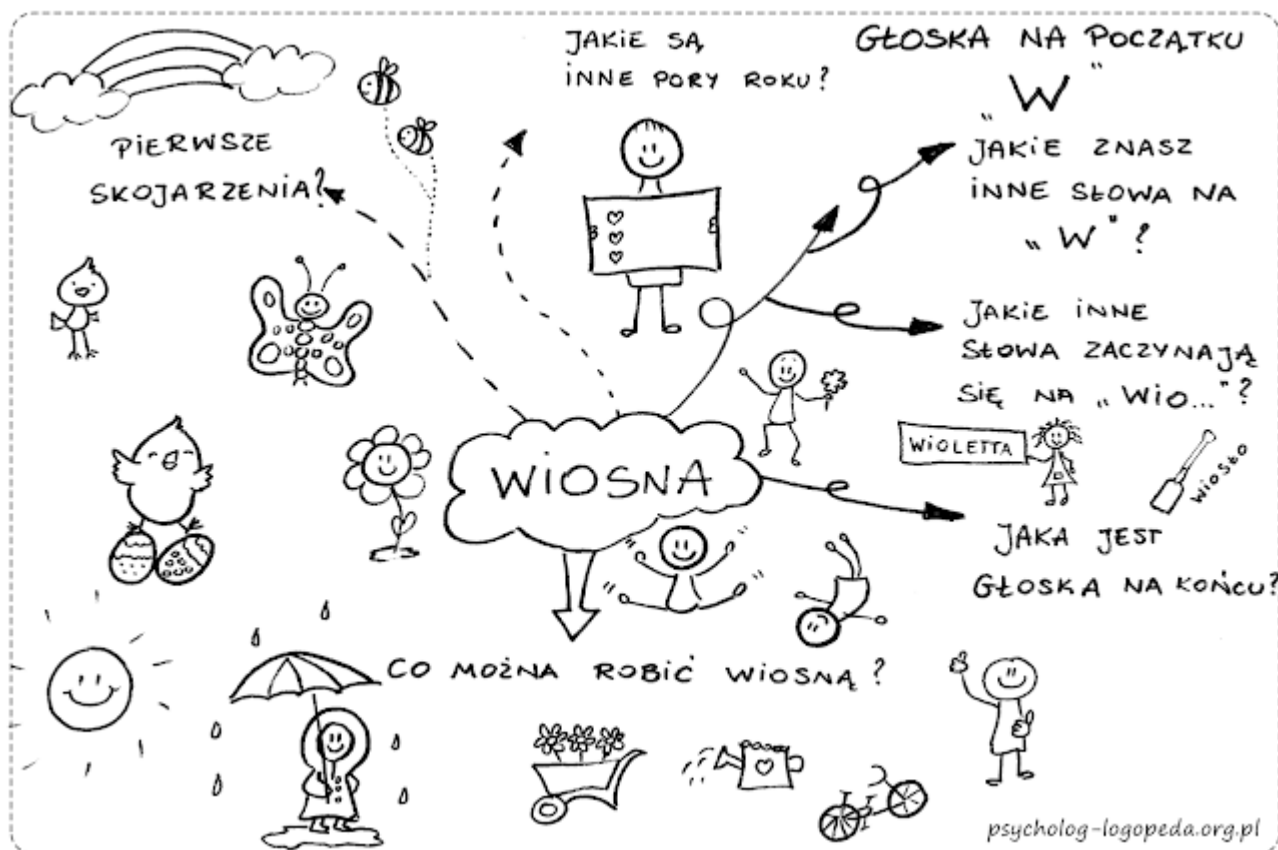 PIERWSZE
SKOJARZENIA?
JAKIE SĄ
INNE PORY ROKU?
GŁOSKA NA POCZĄTKU
„W”
JAKIE ZNASZ
INNE SŁOWA NA
„W”?
JAKIE INNE
SŁOWA ZACZYNAJĄ
SIĘ NA „WIO..."?
WIOLETTA
WIOSŁO
WIOSNA
JAKA JEST
GŁOSKA NA KOŃCU?
CO MOŻNA ROBIĆ WIOSNĄ?
psycholog-logopeda.org.pl